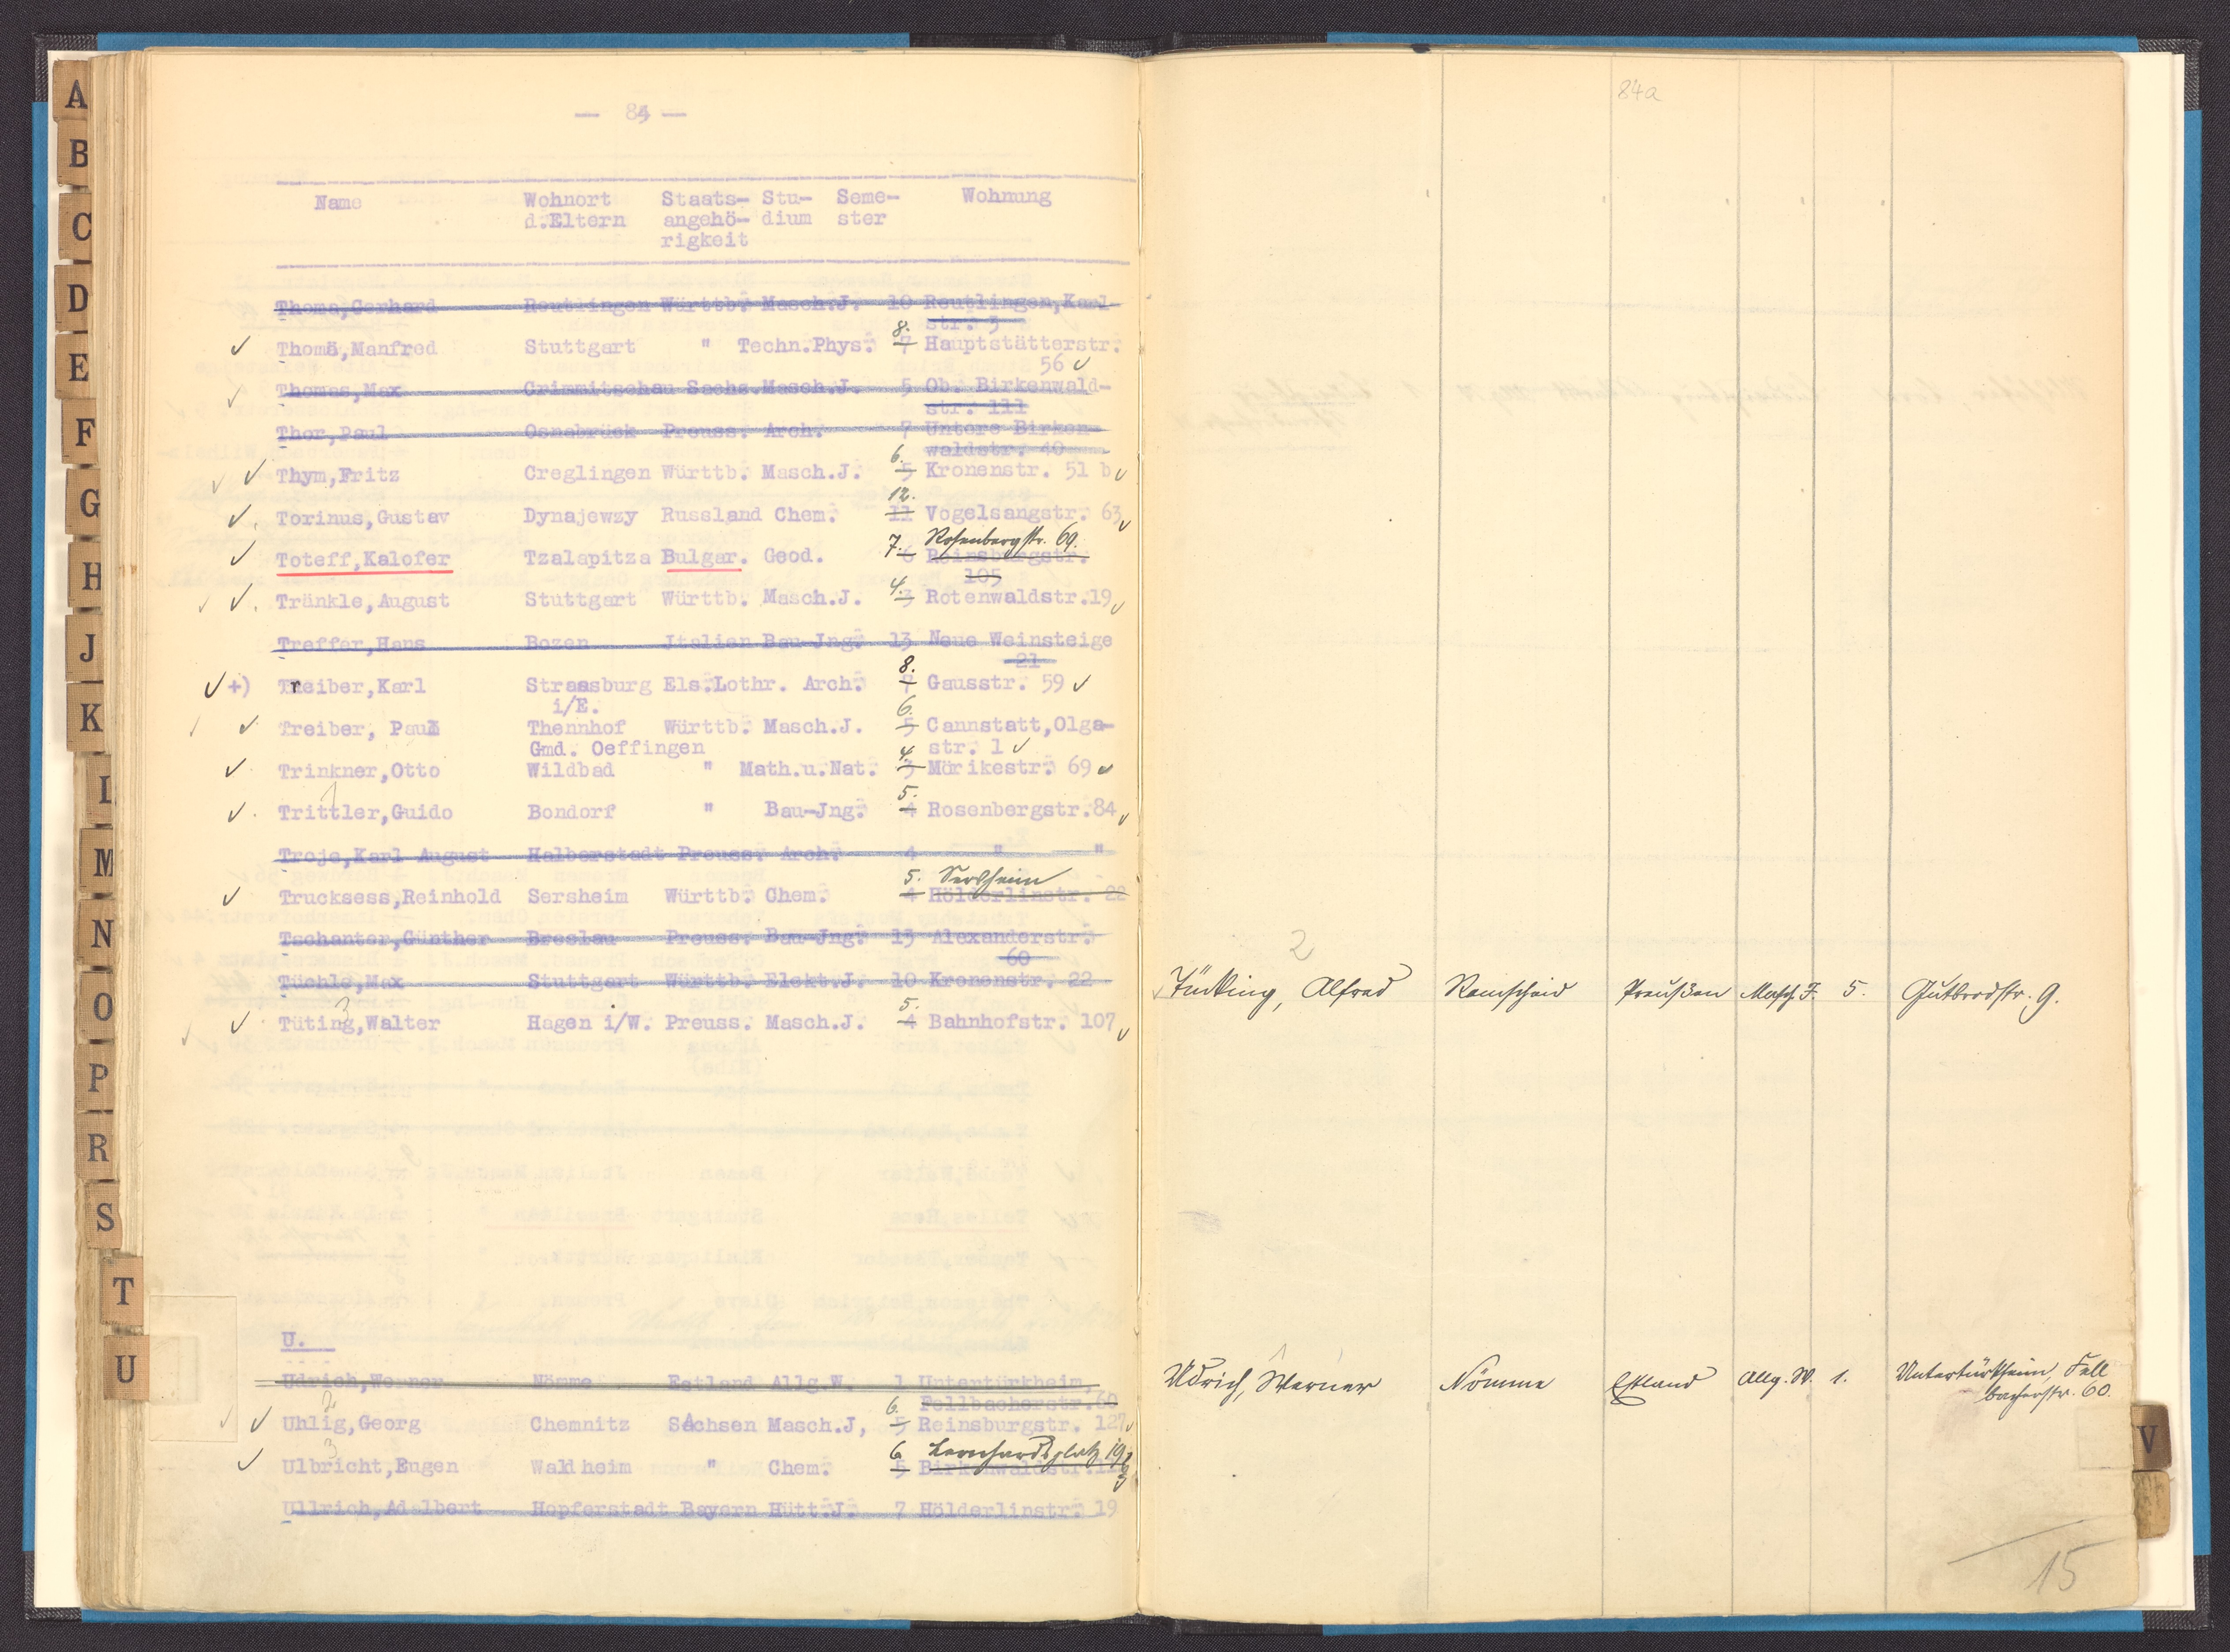 A
B
C
D
E
F
G
H
J
K
L
M
N
O
P
R
S
T
U
— 84 —
Name Wohnort Staats- Stu- Seme- Wohnung
d.Eltern angehö- dium ster
rigkeit
Thoma,Gerhard Reutlingen Württb. Masch.J. 10 Reutlingen,Karl-
str. 3
8.
Thomä,Manfred Stuttgart " Techn.Phys. 7 Hauptstätterstr.
56 ✓
Thomas,Max Crimmitschau Sachs.Masch.J. 5 Ob. Birkenwald-
str. 111
Thor,Paul Osnabrück Preuss. Arch. 7 Untere Birken-
waldstr. 40
6.
Thym,Fritz Creglingen Württb. Masch.J. 5 Kronenstr. 51 b
12.
Torinus,Gustav Dynajewzy Russland Chem. 11 Vogelsangstr. 63
7. Rosenbergstr. 69.
Toteff,Kalofer Tzalapitza Bulgar. Geod. 6 Reinsburgstr.
105
4.
Tränkle,August Stuttgart Württb. Masch.J. 3 Rotenwaldstr.19
Treffer,Hans Bozen Italien Bau-Jng. 13 Neue Weinsteige
21
8.
+) Treiber,Karl Strassburg Els.Lothr. Arch. 7 Gausstr. 59
i/E.
6.
Treiber, Paul Thennhof Württb. Masch.J. 5 Cannstatt,Olga-
Gmd. Oeffingen str. 1
4.
Trinkner,Otto Wildbad " Math.u.Nat. 3 Mörikestr. 69
5.
Trittler,Guido Bondorf " Bau-Jng. 4 Rosenbergstr.84
Troje,Karl August Halberstadt Preuss. Arch. 4 " "
5. Sersheim
Trucksess,Reinhold Sersheim Württb. Chem. 4 Hölderlinstr. 22
Tschanter,Günther Breslau Preuss. Bau-Jng. 13 Alexanderstr.
60
Tüchle,Max Stuttgart Württb. Elekt.J. 10 Kronenstr. 22
3 5.
Tüting,Walter Hagen i/W. Preuss. Masch.J. 4 Bahnhofstr. 107
U.
Udrich,Werner Nömme Estland Allg.W. 1 Untertürkheim,
Fellbacherstr.60
2 6.
Uhlig,Georg Chemnitz SAchsen Masch.J, 5 Reinsburgstr. 127
3 6 Leonhardsplatz 19
Ulbricht,Eugen Waldheim " Chem. 5 Birkenwaldstr.
Ullrich,Adalbert Hopferstadt Bayern Hütt.J. 7 Hölderlinstr. 19
84a
2
Tütking, Alfred Remscheid Preußen Masch. J. 5. Gutbrodstr. 9.
Udrich, Werner Nömme Estland Allg. W. 1. Untertürkheim, Fell
bacherstr. 60.
V
15